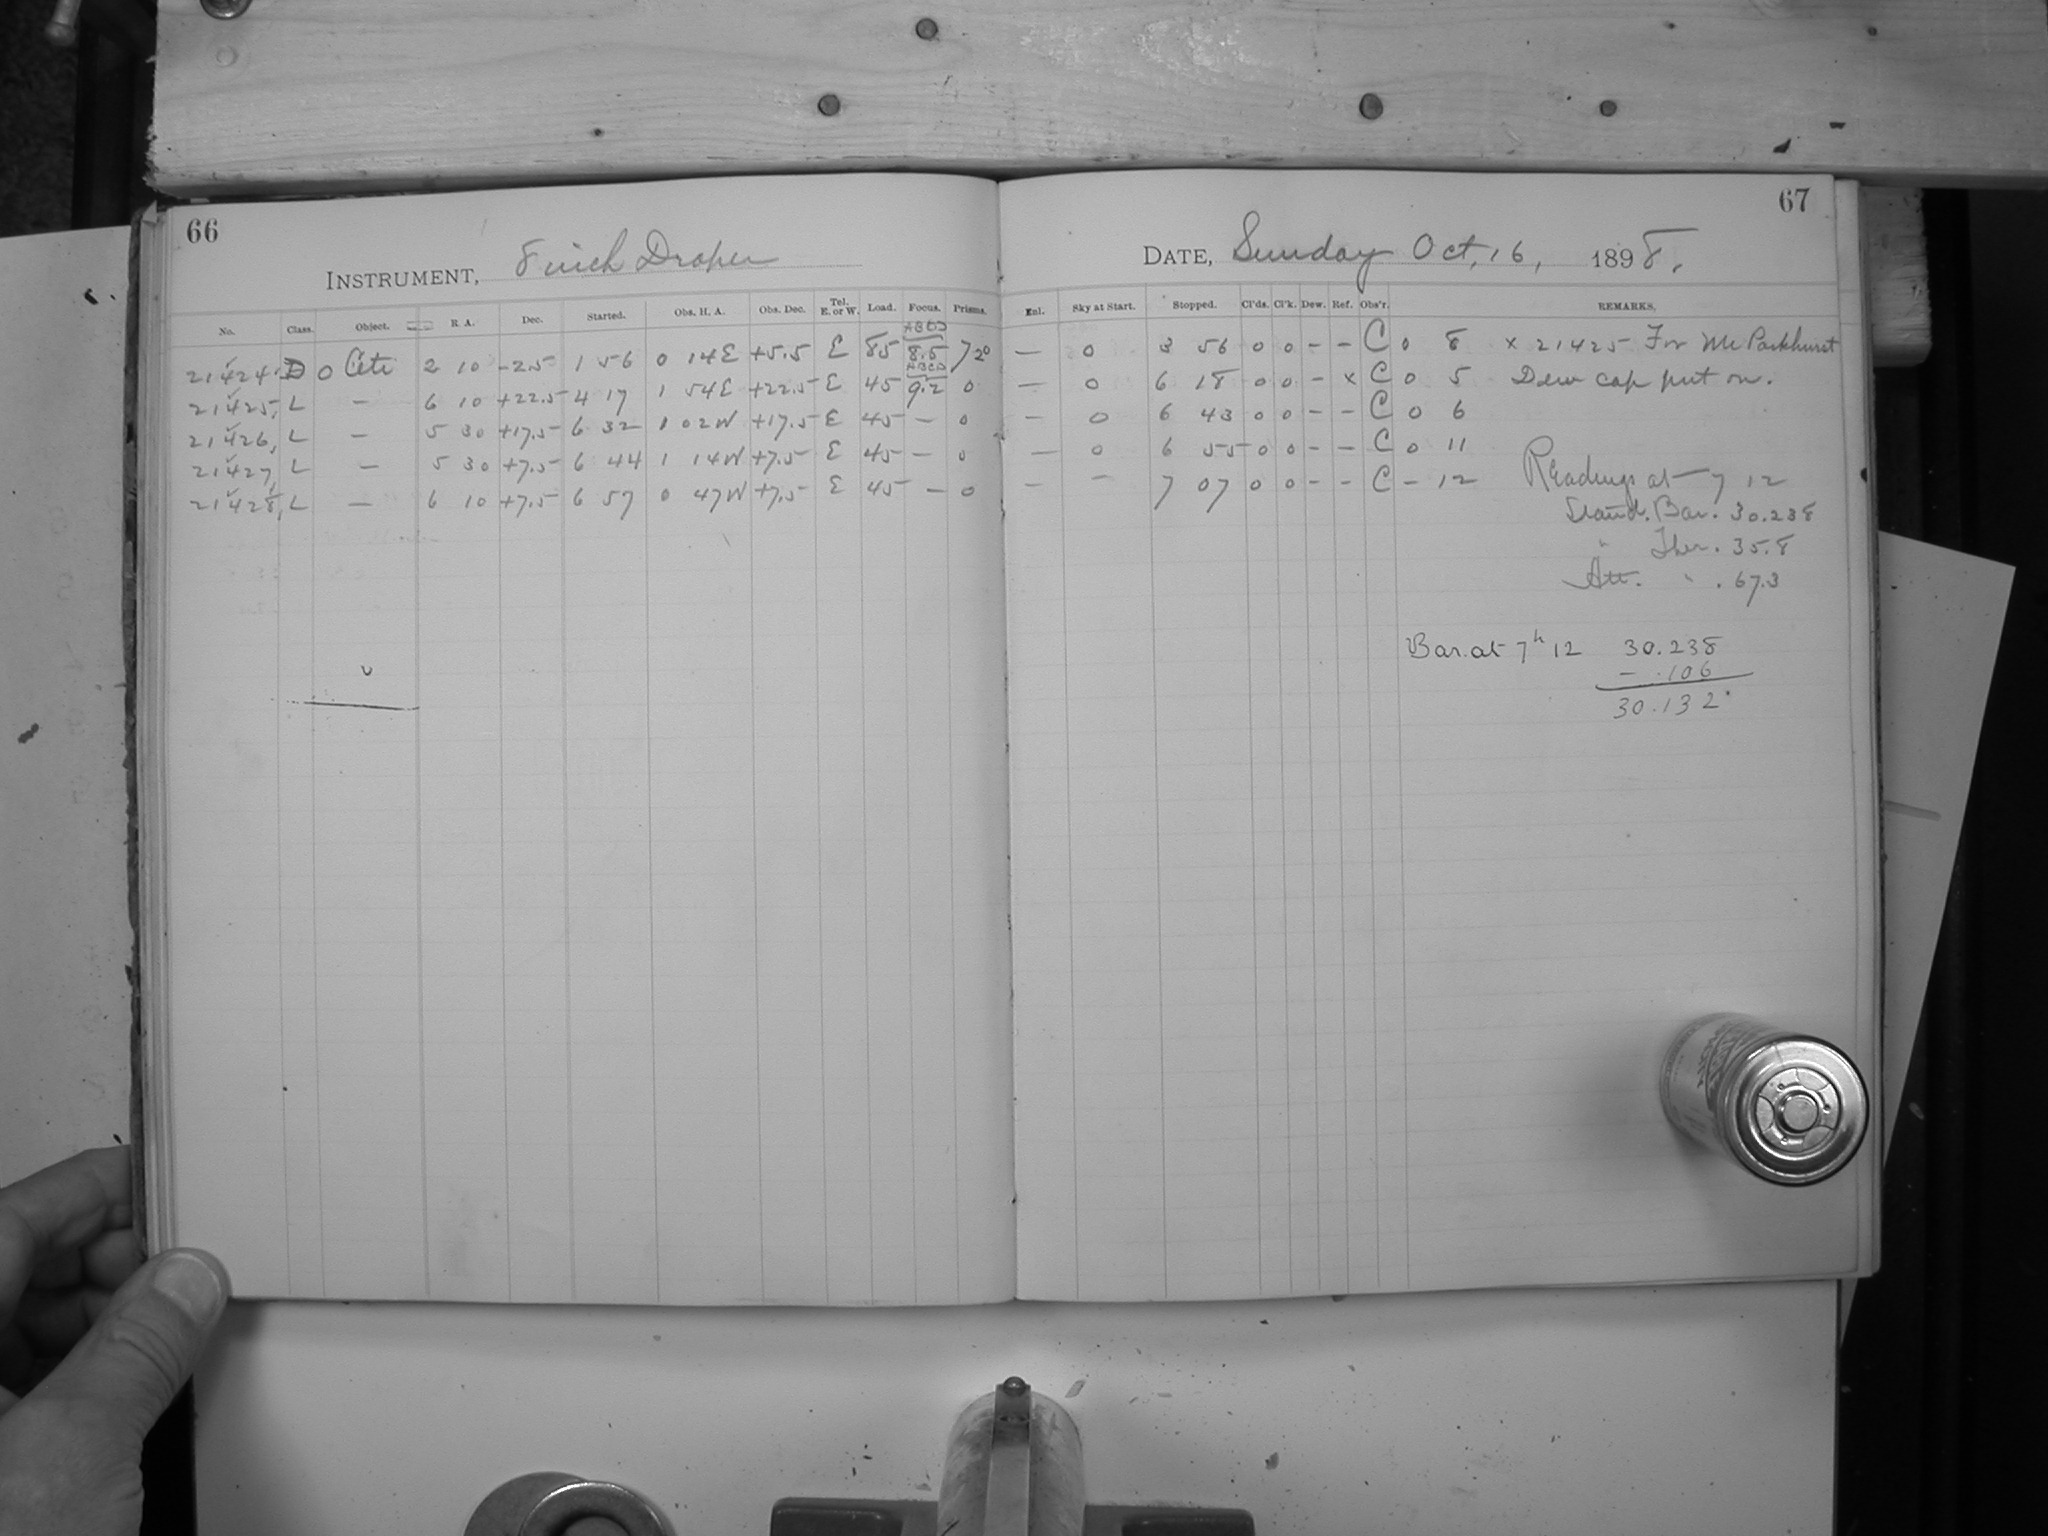 66
INSTRUMENT, 8 inch Draper
No. Class. Object. R. A. Dec. Started. Obs. H. A. Obs. Dec. Tel. E. or W. Load. Focus. Prisms.
21424 D o Ceti 2 10 -2.5 1 56 0 14 E +5.5 E 85 ABCD 8.5 7 20
21425, L — 6 10 +22.5 4 17 1 54 E +22.5 E 45 ABCD 9.2 0
21426, L — 5 30 +17.5 6 32 1 02 W +17.5 E 45 — 0
21427, L — 5 30 +7.5 6 44 1 14 W +7.5 E 45 — 0
21428, L — 6 10 +7.5 6 57 0 47 W +7.5 E 45 — 0
67
DATE, Sunday Oct, 16, 1898.
Enl. Sky at Start. Stopped. Cl'ds. Cl'k. Dew. Ref. Obs'r. REMARKS.
— 0 3 56 0 0 - - C 0 8 x 21425 For Mr Parkhurst
— 0 6 18 0 0 - x C 0 5 Dew cap put on.
— 0 6 43 0 0 - - C 0 6
— 0 6 55 0 0 - - C 0 11
— — 7 07 0 0 - - C - 12 Readings at 7 12
Stand. Bar. 30.238
" Ther. 35.8
Att. " . 67.3
Bar. at 7h 12 30.238
- .106
30.132